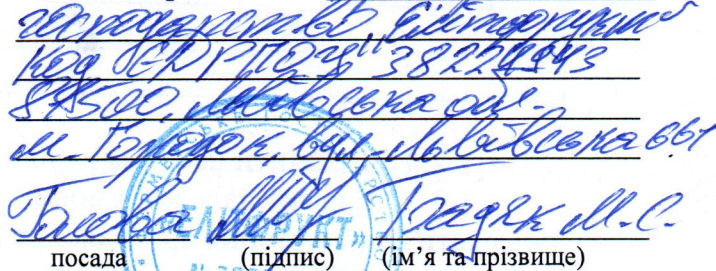 господарство "Елітфрукт"
код ЄДРПОУ 38224943
81500, Львівська обл.
м. Городок, вул. Львівська 661
Голова М.С.
«ЕЛІТФРУКТ»
посада (підпис) (ім'я та прізвище)